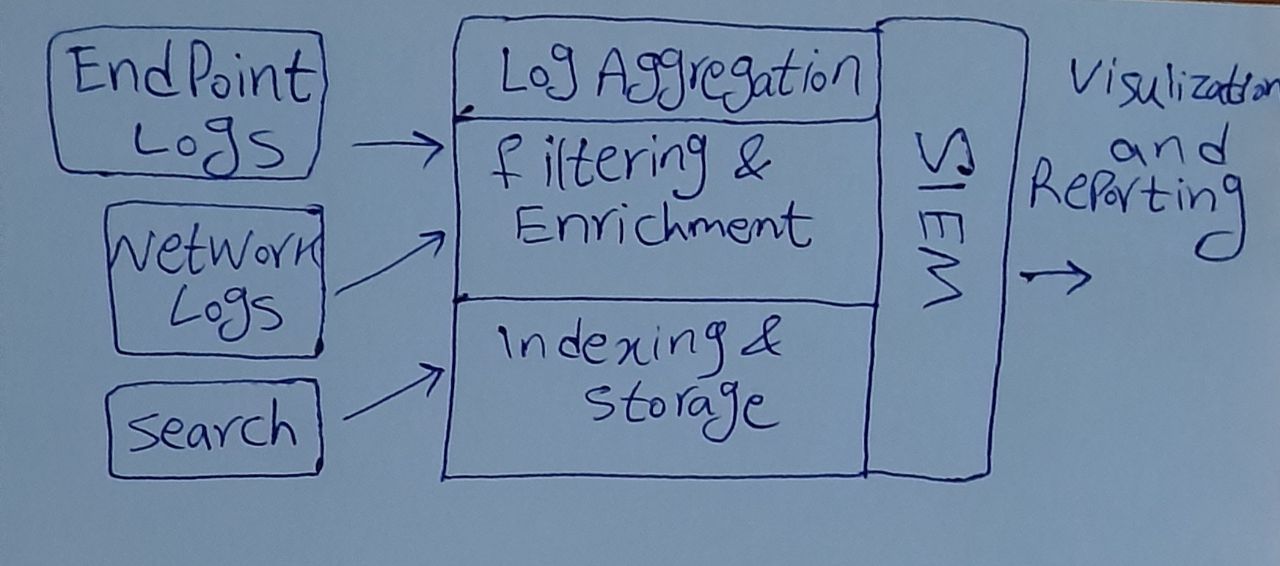 EndPoint
Logs
Network
Logs
search
Log Aggregation
filtering &
Enrichment
Indexing &
storage
SIEM
Visulization
and
Reporting